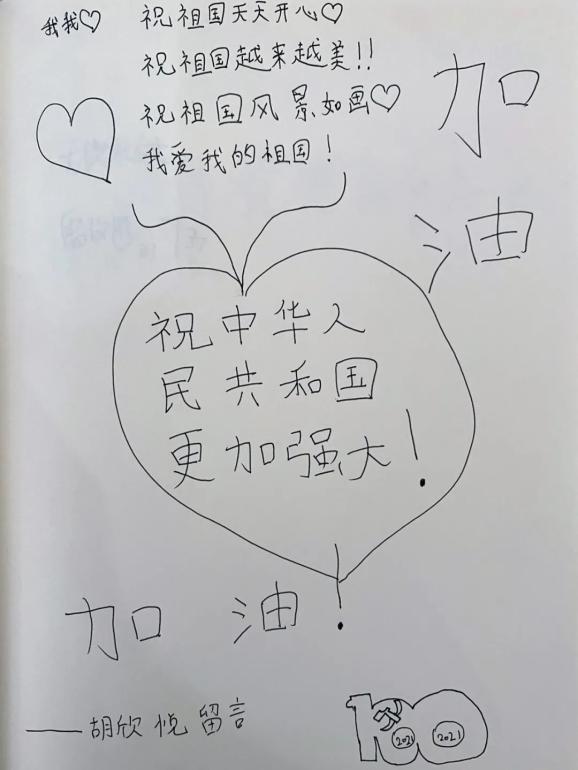 我我♡
祝祖国天天开心♡
祝祖国越来越美!!
祝祖国风景如画♡
我爱我的祖国!
加
油
祝中华人
民共和国
更加强大!
加油!
——胡欣悦留言
100
2021 2021